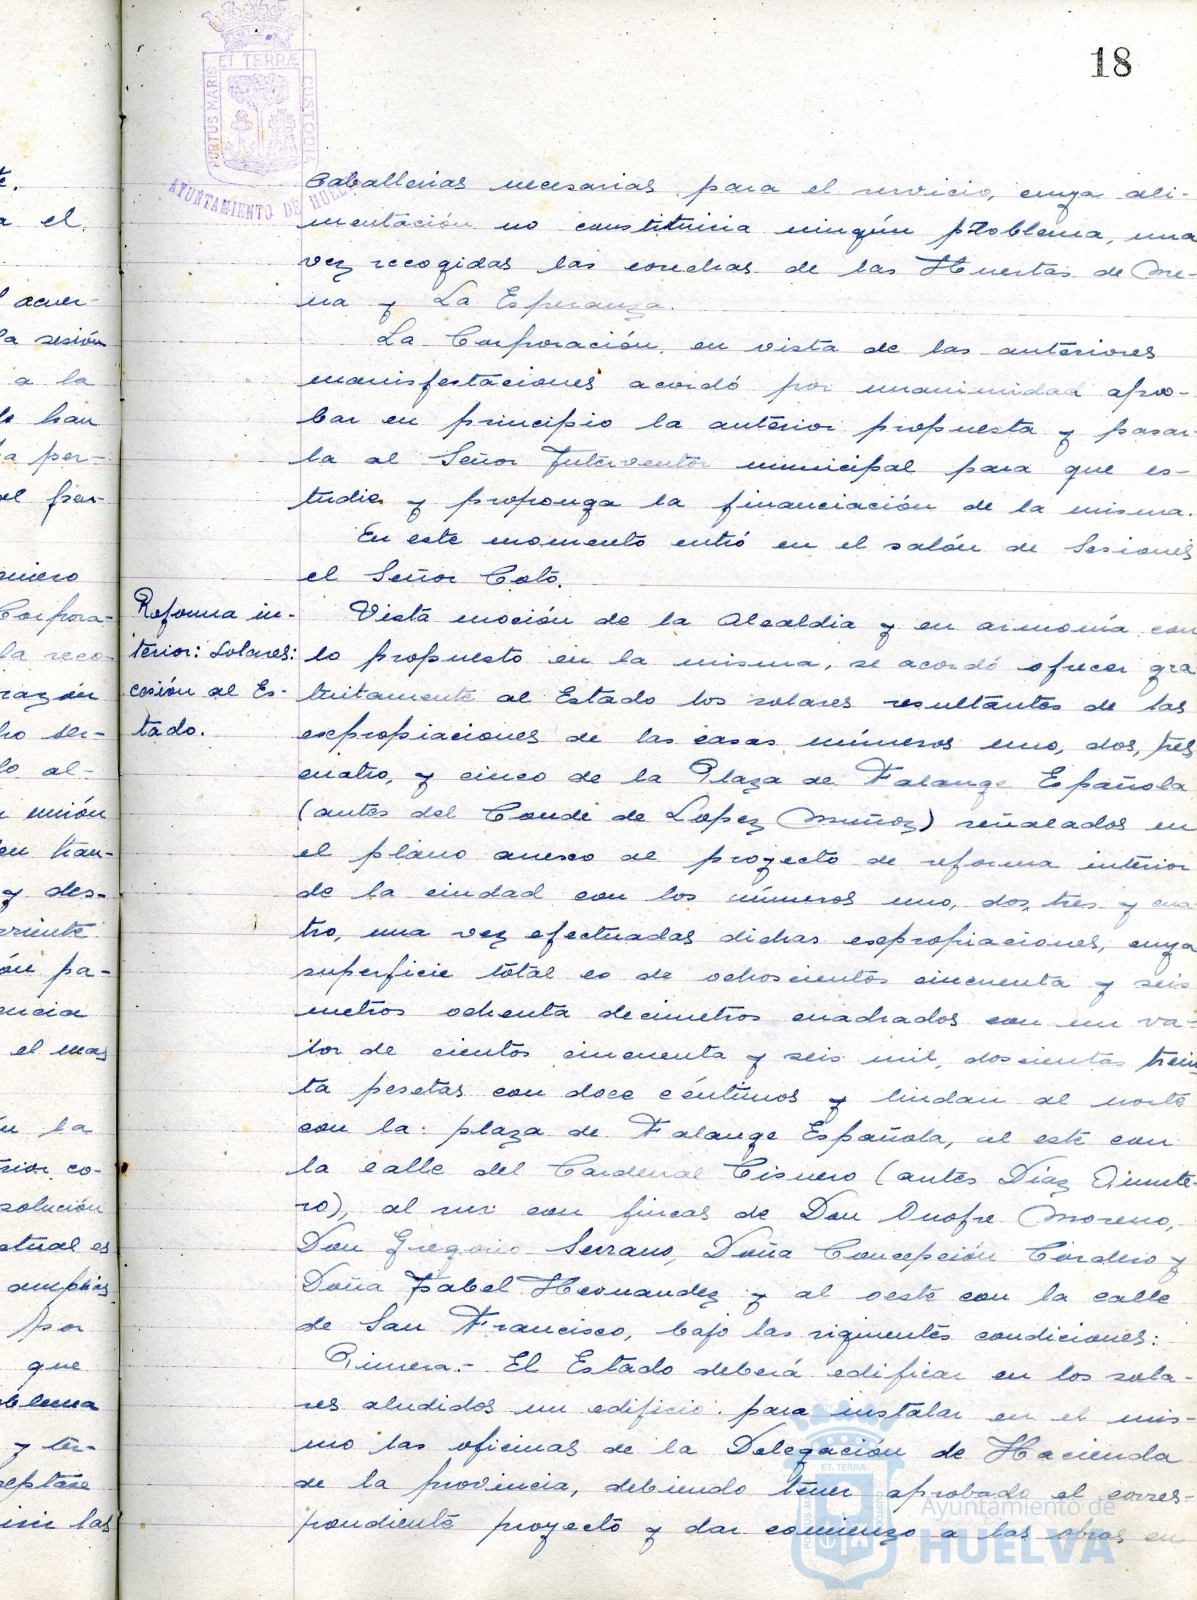 18
PORTUS MARIS ET TERRÆ CUSTODIA
AYUNTAMIENTO DE HUELVA
Caballerias necesarias para el servicio, cuya ali-
mentación no constituiria ningún problema, una
vez recogidas las cosechas de las Huertas de Me-
na y La Esperanza.
La Corporación, en vista de las anteriores
manisfestaciones acordó por unanimidad apro-
bar en principio la anterior propuesta y pasar-
la al Señor Interventor municipal para que es-
tudie y proponga la financiación de la misma.
En este momento entró en el salón de Sesiones
el Señor Coto.
Reforma in-
terior: Solares:
cesión al Es-
tado.
Vista moción de la Alcaldia y en armonía con
lo propuesto en la misma, se acordó ofrecer gra
tuitamente al Estado los solares resultantes de las
expropiaciones de las casas números uno, dos, tres
cuatro, y cinco de la Plaza de Falange Española
(antes del Conde de Lopez Muñoz) señalados en
el plano anexo al proyecto de reforma interior
de la ciudad con los números uno, dos, tres y cua
tro, una vez efectuadas dichas expropiaciones, cuya
superficie total es de ochoscientos cincuenta y seis
metros ochenta decimetros cuadrados con un va-
lor de cientos cincuenta y seis mil, doscientas trein
ta pesetas con doce céntimos y lindan al norte
con la plaza de Falange Española, al este con
la calle del Cardenal Cisnero (antes Díaz Quinte-
ro), al sur con fincas de Don Onofre Moreno,
Don Gregorio Serrano, Doña Concepción Cordero y
Doña Isabel Hernandez y al oeste con la calle
de San Francisco, bajo las siguientes condiciones:
Primera.- El Estado deberá edificar en los sola-
res aludidos un edificio para instalar en el mis-
mo las oficinas de la Delegación de Hacienda
de la provincia, debiendo tener aprobado el corres-
pondiente proyecto y dar comienzo a las obras en
Ayuntamiento de
HUELVA